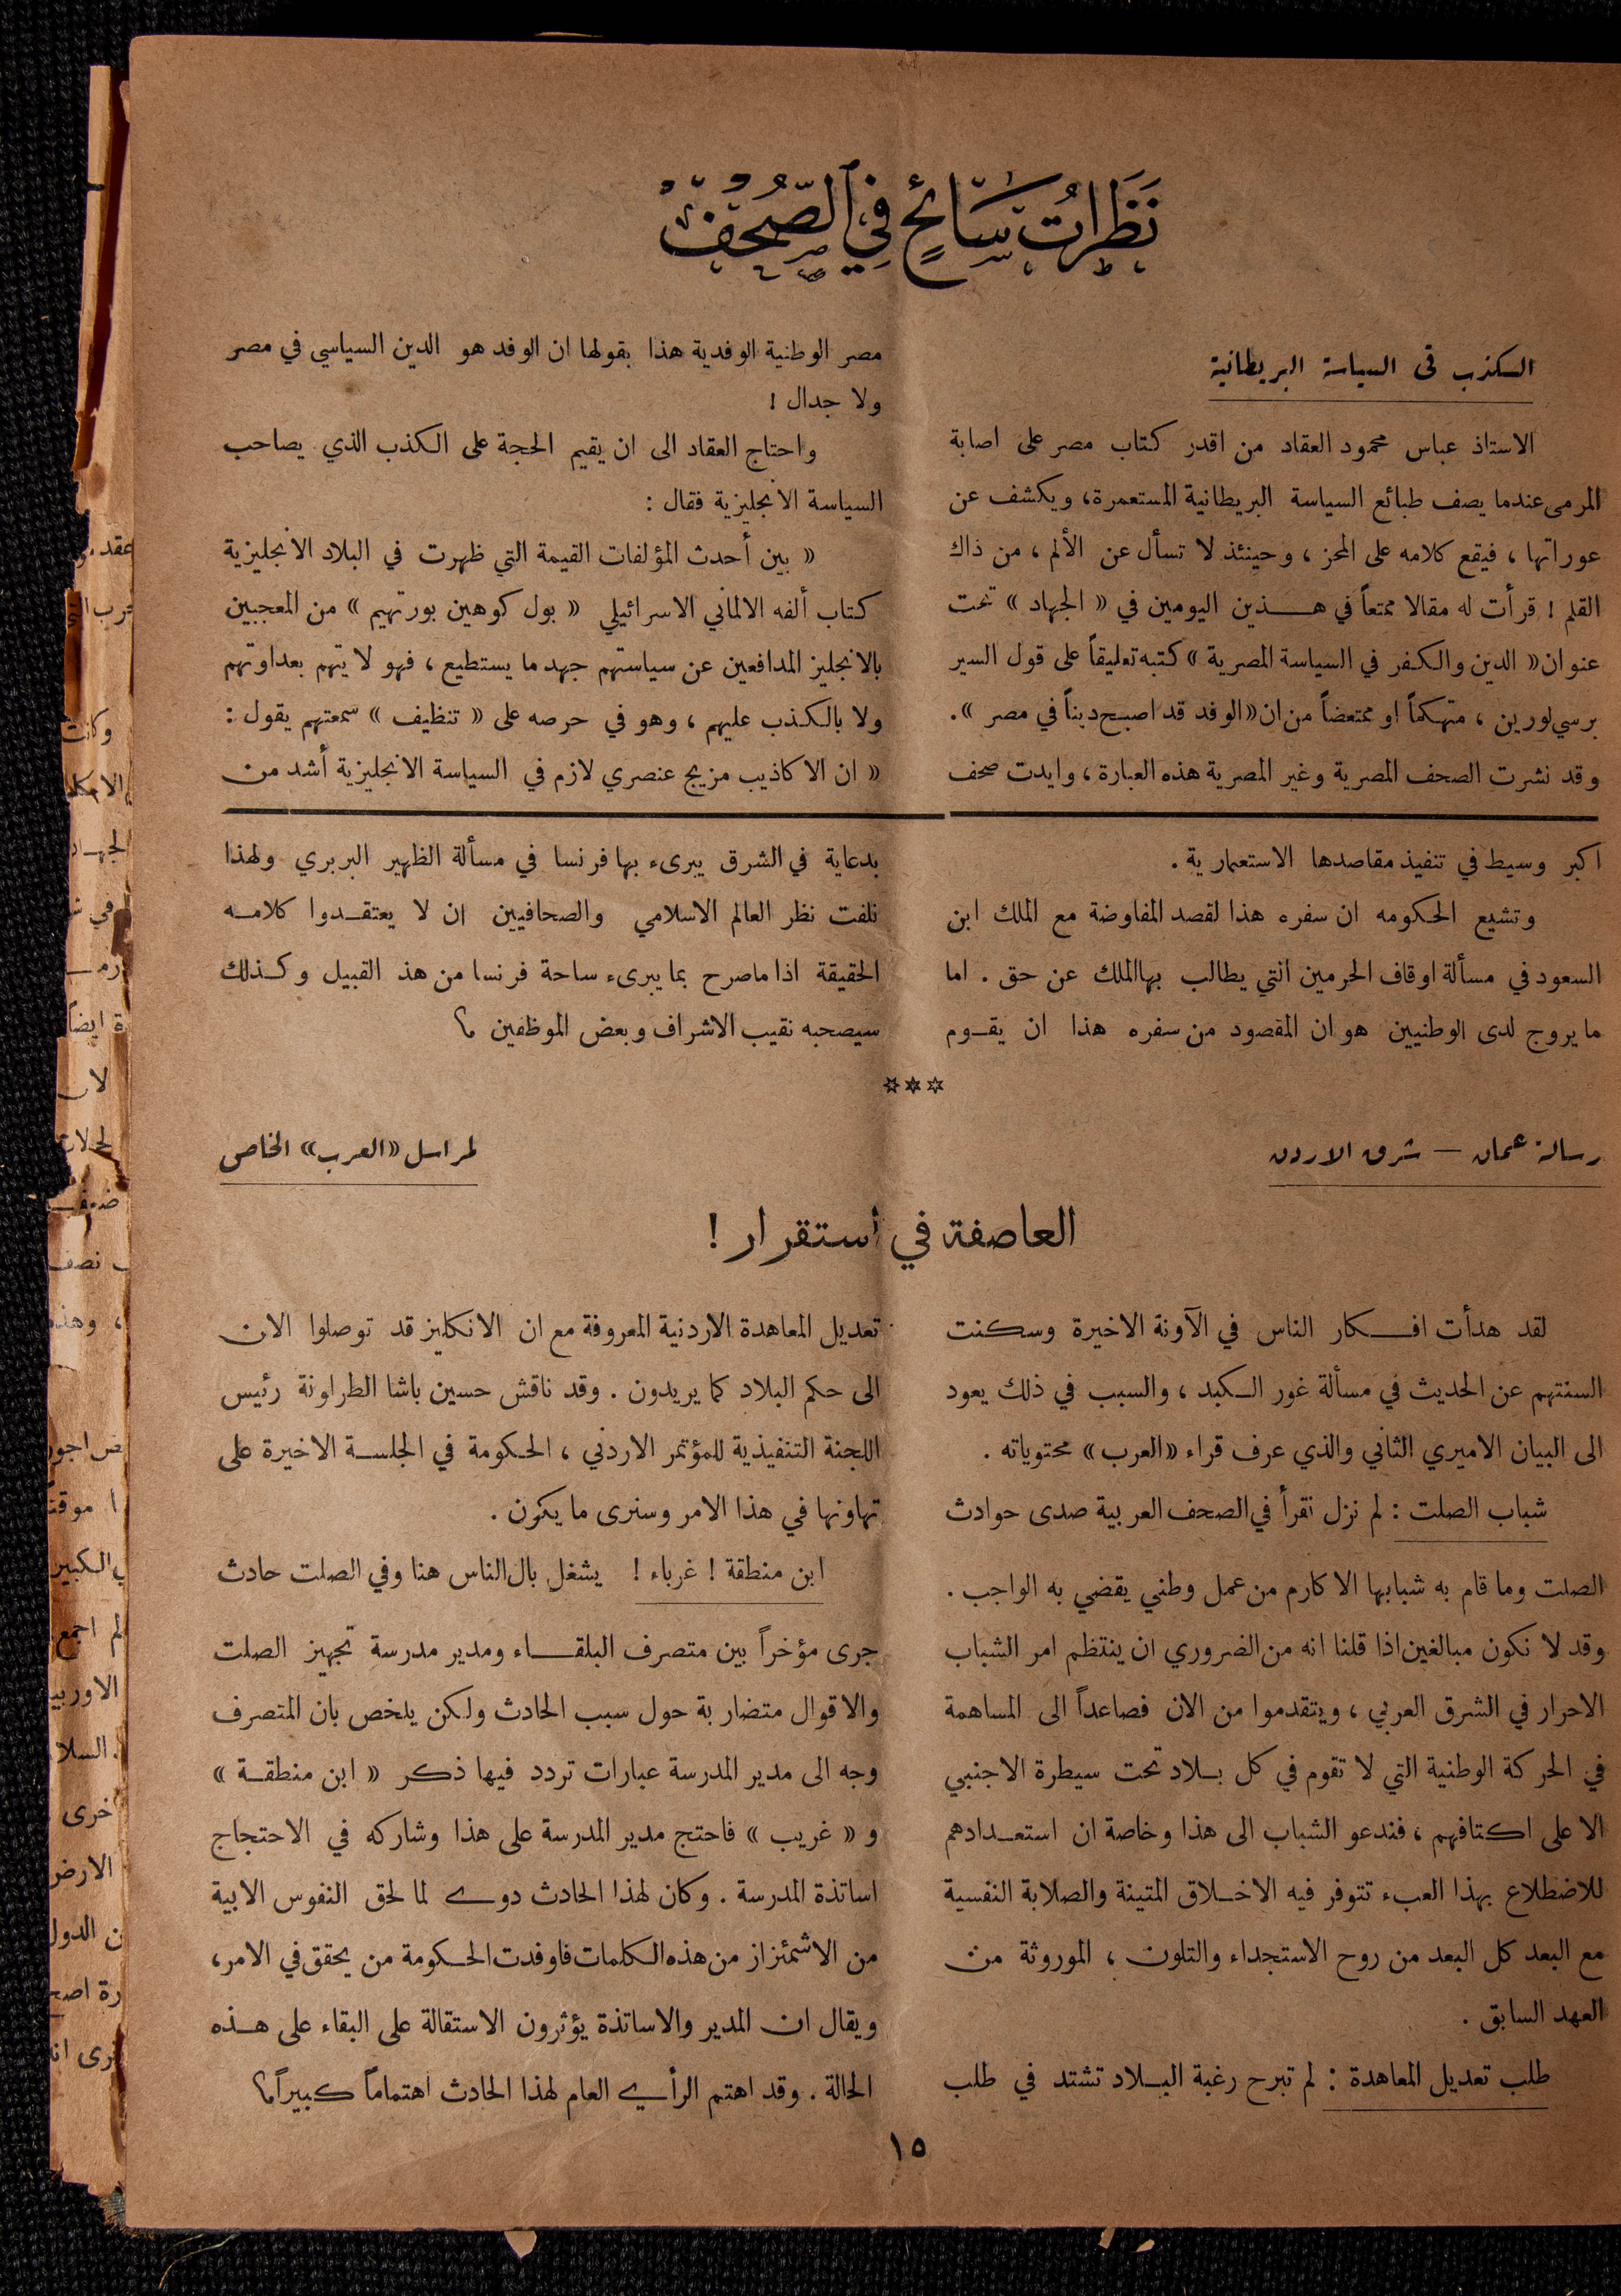 نَظَرَاتُ سَائِحٍ فِي الصُّحُفْ
الكذب في السياسة البريطانية
الاستاذ عباس محمود العقاد من اقدر كتاب مصر على اصابة
المرمى عندما يصف طبائع السياسة البريطانية المستعمرة، ويكشف عن
عوراتها ، فيقع كلامه على المحز ، وحينئذ لا تسأل عن الألم ، من ذاك
القلم ! قرأت له مقالا ممتعاً في هذين اليومين في « الجهاد » تحت
عنوان « الدين والكفر في السياسة المصرية » كتبه تعليقاً على قول السير
برسي لورين ، متهكماً او ممتعضاً من ان « الوفد قد اصبح ديناً في مصر » .
وقد نشرت الصحف المصرية وغير المصرية هذه العبارة ، وايدت صحف
مصر الوطنية الوفدية هذا بقولها ان الوفد هو الدين السياسي في مصر
ولا جدال !
واحتاج العقاد الى ان يقيم الحجة على الكذب الذي يصاحب
السياسة الانجليزية فقال :
« بين أحدث المؤلفات القيمة التي ظهرت في البلاد الانجليزية
كتاب ألفه الالماني الاسرائيلي « بول كوهين بورتهيم » من المعجبين
بالانجليز المدافعين عن سياستهم جهد ما يستطيع ، فهو لا يتهم بعداوتهم
ولا بالكذب عليهم ، وهو في حرصه على « تنظيف » سمعتهم يقول :
« ان الاكاذيب مزيج عنصري لازم في السياسة الانجليزية أشد من
اكبر وسيط في تنفيذ مقاصدها الاستعمارية .
وتشيع الحكومه ان سفره هذا لقصد المفاوضة مع الملك ابن
السعود في مسألة اوقاف الحرمين التي يطالب بها الملك عن حق . اما
ما يروج لدى الوطنيين هو ان المقصود من سفره هذا ان يقوم
بدعاية في الشرق يبرىء بها فرنسا في مسألة الظهير البربري ولهذا
نلفت نظر العالم الاسلامي والصحافيين ان لا يعتقدوا كلامه
الحقيقة اذا ماصرح بما يبرىء ساحة فرنسا من هذ القبيل وكذلك
سيصحبه نقيب الاشراف وبعض الموظفين ؟
***
رسالة عمان — شرق الاردن
لمراسل «العرب» الخاص
العاصفة في أستقرار !
لقد هدأت افكار الناس في الآونة الاخيرة وسكنت
السنتهم عن الحديث في مسألة غور الكبد ، والسبب في ذلك يعود
الى البيان الاميري الثاني والذي عرف قراء «العرب» محتوياته .
شباب الصلت : لم نزل نقرأ في الصحف العربية صدى حوادث
الصلت وما قام به شبابها الاكارم من عمل وطني يقضي به الواجب .
وقد لا نكون مبالغين اذا قلنا انه من الضروري ان ينتظم امر الشباب
الاحرار في الشرق العربي ، ويتقدموا من الان فصاعداً الى المساهمة
في الحركة الوطنية التي لا تقوم في كل بلاد تحت سيطرة الاجنبي
الا على اكتافهم ، فندعو الشباب الى هذا وخاصة ان استعدادهم
للاضطلاع بهذا العبء تتوفر فيه الاخلاق المتينة والصلابة النفسية
مع البعد كل البعد من روح الاستجداء والتلون ، الموروثة من
العهد السابق .
طلب تعديل المعاهدة : لم تبرح رغبة البلاد تشتد في طلب
تعديل المعاهدة الاردنية المعروفة مع ان الانكليز قد توصلوا الان
الى حكم البلاد كما يريدون . وقد ناقش حسين باشا الطراونة رئيس
اللجنة التنفيذية للمؤتمر الاردني ، الحكومة في الجلسة الاخيرة على
تهاونها في هذا الامر وسنرى ما يكون .
ابن منطقة ! غرباء ! يشغل بال الناس هنا وفي الصلت حادث
جرى مؤخراً بين متصرف البلقاء ومدير مدرسة تجهيز الصلت
والاقوال متضاربة حول سبب الحادث ولكن يلخص بان المتصرف
وجه الى مدير المدرسة عبارات تردد فيها ذكر « ابن منطقة »
و « غريب » فاحتج مدير المدرسة على هذا وشاركه في الاحتجاج
اساتذة المدرسة . وكان لهذا الحادث دوي لما لحق النفوس الابية
من الاشمئزاز من هذه الكلمات فاوفدت الحكومة من يحقق في الامر ،
ويقال ان المدير والاساتذة يؤثرون الاستقالة على البقاء على هذه
الحالة . وقد اهتم الرأي العام لهذا الحادث اهتماماً كبيراً ؟
١٥